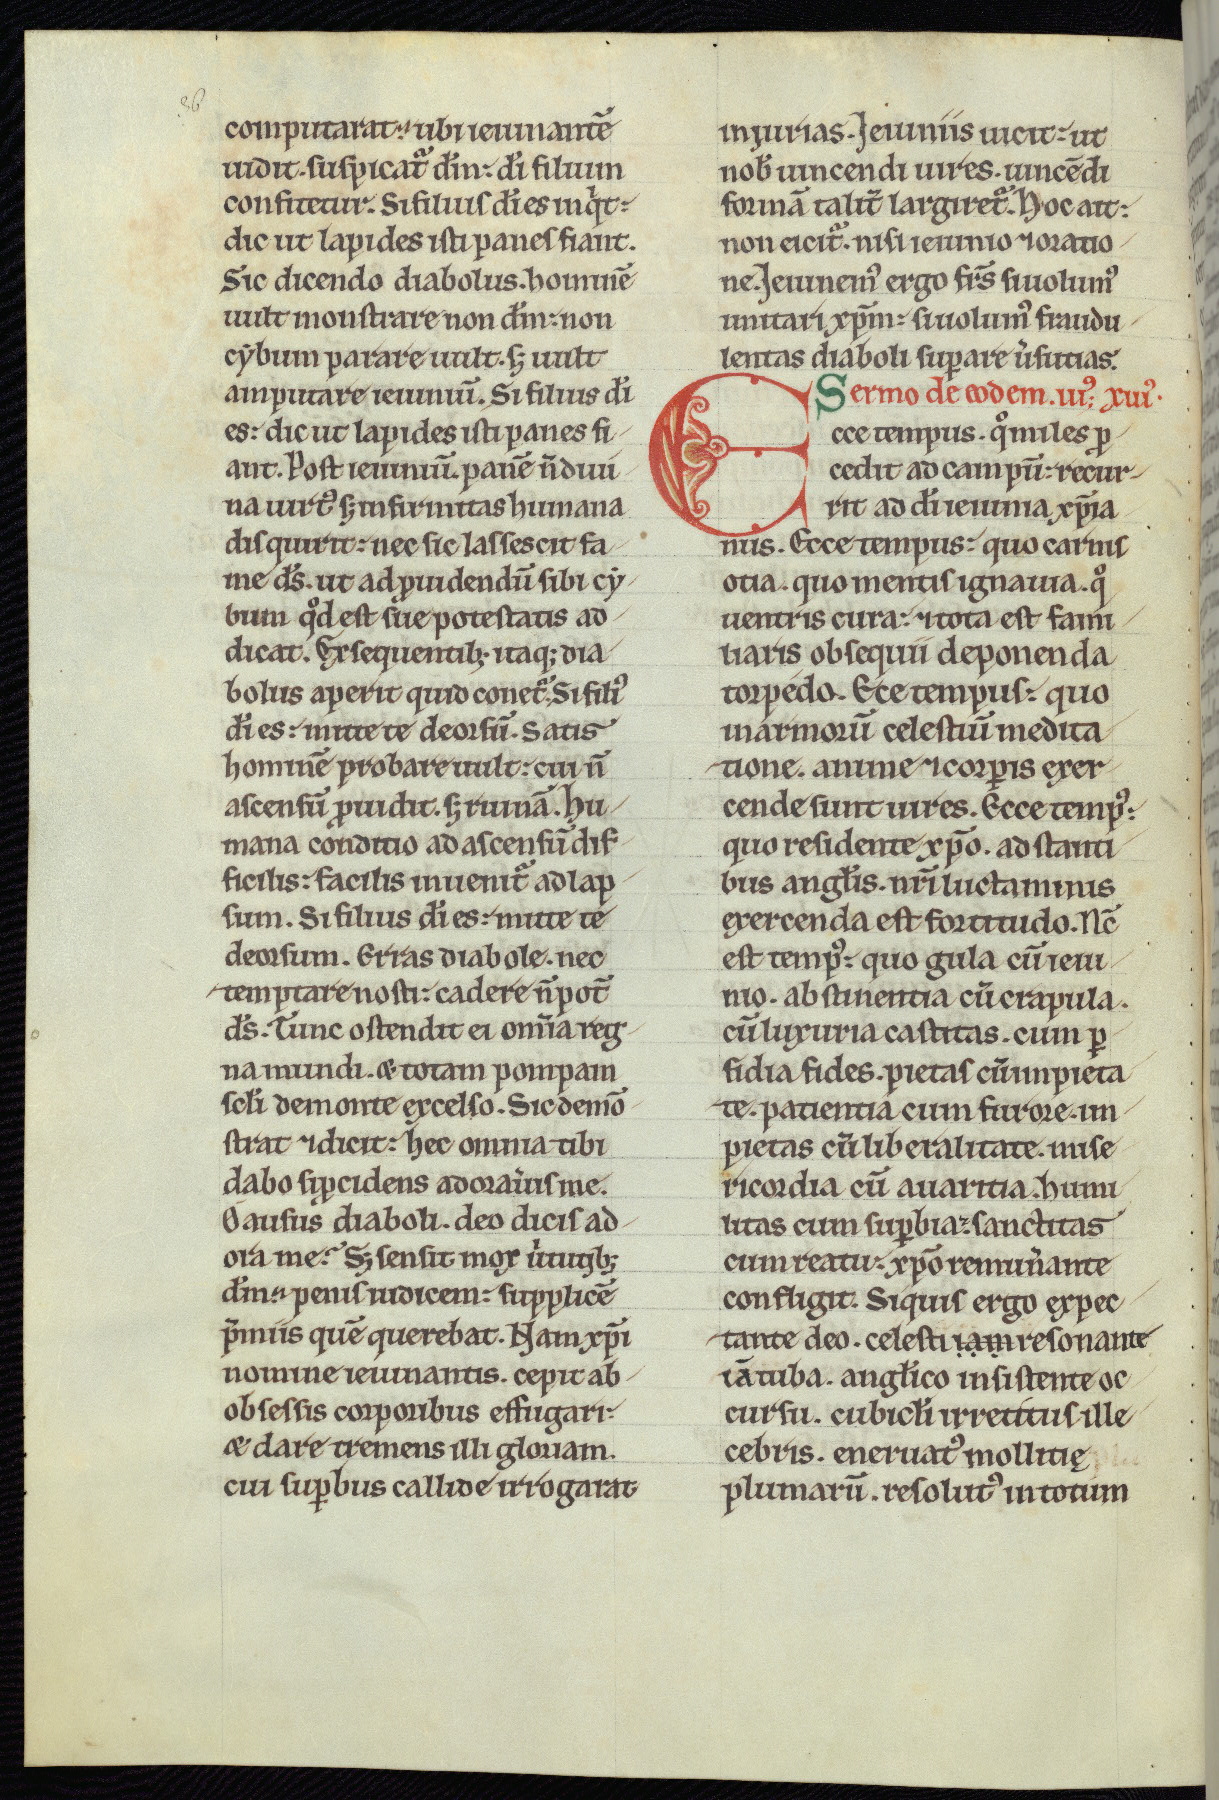 36
computarat. ubi ieiunantē
uidit. suspicat᷑ dm̄: di filium
confitetur. Si filius di es inqͥt:
dic ut lapides isti panes fiant.
Sic dicendo diabolus. hominē
uult monstrare non dm̄: non
cybum parare uult. sꝫ uult
amputare ieiuniū. Si filius di
es: dic ut lapides isti panes fi
ant. Post ieiuniū. panē n̄ diui
na uirtꝰ sꝫ infirmitas humana
disquirit: nec sic lassescit fa
me ds̄. ut ad ꝓuidendū sibi cy
bum qͦd est sue potestatis ad
dicat. Ex sequentibꝫ itaqꝫ dia
bolus aperit quid conet᷑. Si filiꝰ
di es: mitte te deorsū. Satis
hominē probare uult: cui n̄
ascensū ꝓuidit. sꝫ ruinā. Hu
mana conditio ad ascensū dif
ficilis: facilis inuenit᷑ ad lap
sum. Si filius di es: mitte te
deorsum. Erras diabole. nec
temptare nosti: cadere n̄ potē
ds̄. Tunc ostendit ei omīa reg
na mundi. & totam pompam
scli de monte excelso. Sic demō
strat ⁊ dicit: hec omnia tibi
dabo si ꝓcidens adoraùis me.
O ausus diaboli. deo dicis ad
ora me? Sꝫ sensit mox ùtutibꝫ
dm̄. penis iudicem: supplicē
p̄miis quē querebat. Nam xp̄i
nomine ieiunantis. cepit ab
obsessis corporibus effugari:
& dare tremens illi gloriam.
cui suꝑbus callide irrogarat
iniurias. Ieiuniis uicit: ut
nob̄ uincendi uires. uincēdi
formā talit̄ largiret᷑. Hoc ait:
non eicit᷑. nisi ieiunio ⁊ oratio
ne. Ieiunemꝰ ergo fr̄s si uolumꝰ
imitari xp̄m: si uolumꝰ fraudu
lentas diaboli suꝑare ùsutias.
Sermo de eodem. uiꝰ; xuiꝰ.
Ecce tempus. qͦ miles ꝓ
cedit ad campū: recur
rit ad di ieiunia xp̄ia
nus. Ecce tempus: quo carnis
otia. quo mentis ignauia. qͦ
uentris cura: ⁊ tota est fami
liaris obsequii deponenda
torpedo. Ecce tempus: quo
in armorū celestiū medita
tione. anime ⁊ corꝑis exer
cende sunt uires. Ecce tempꝰ:
quo residente xp̄o. ad stanti
bus anglis. nr̄i luctaminis
exercenda est fortitudo. Nc̄
est tempꝰ: quo gula cū ieiu
nio. abstinentia cū crapula.
cū luxuria castitas. cum ꝑ
fidia fides. pietas cū impieta
te. patientia cum furore. im
pietas cū liberalitate. mise
ricordia cū auaritia. humi
litas cum suꝑbia: sanctitas
cum reatu: xp̄o remun̄ante
confligit. Siquis ergo expec
tante deo. celesti iam resonante
iā tuba. anglico insistente oc
cursu. cubicli irretitus ille
cebris. eneruatꝰ mollitię
plumarū. resolutꝰ in totum